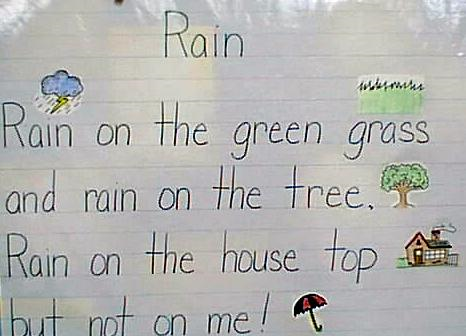 Rain
Rain on the green grass
and rain on the tree.
Rain on the house top
but not on me!